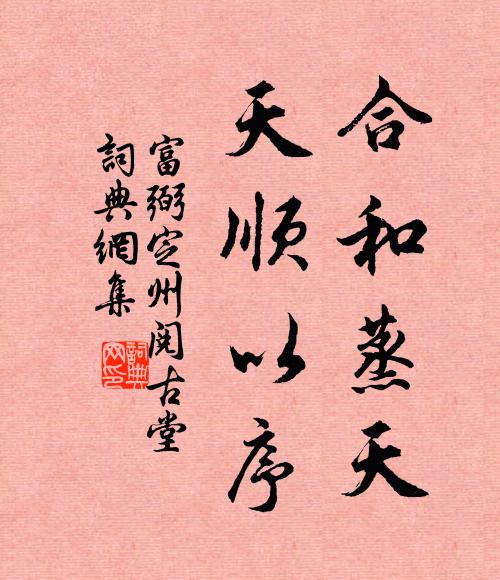 合和蒸天
天順以序
富弼定州閱古堂
詞典網集
詞典
网印